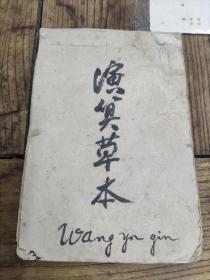 演算草本
Wang yn gin